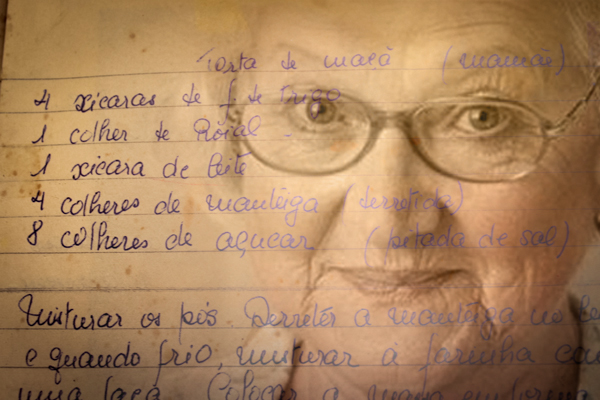 Torta de maçã (mamãe)
4 xicaras de f. de trigo
1 colher de Roial -
1 xicara de leite
4 colheres de manteiga (derretida)
8 colheres de açucar (pitada de sal)
Misturar os pós Derreter a manteiga no
e quando frio, misturar a farinha com
uma faca. Colocar a massa em forma